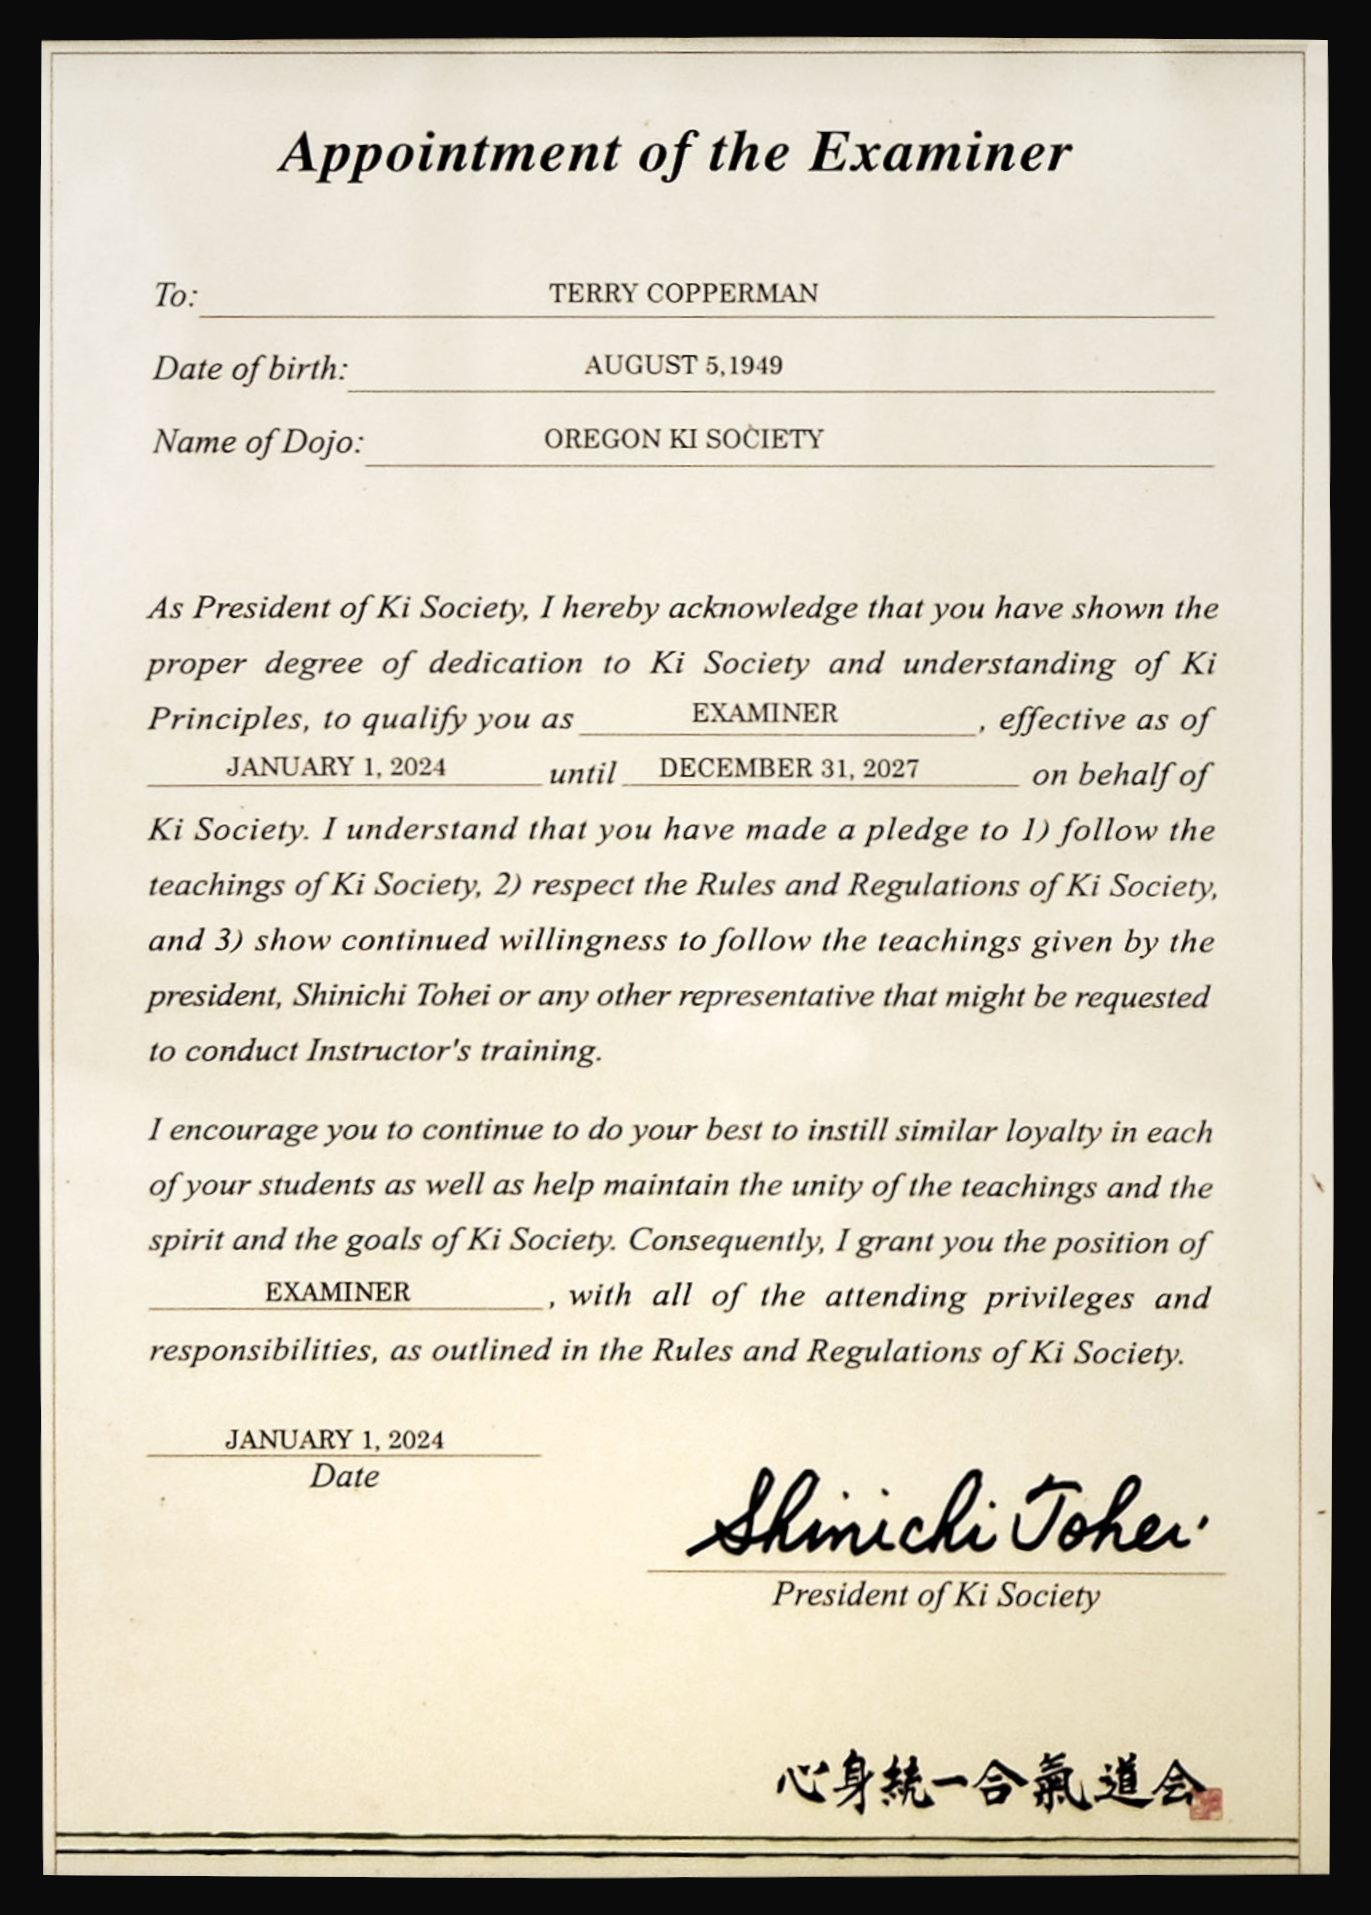 Appointment of the Examiner
To: TERRY COPPERMAN
Date of birth: AUGUST 5,1949
Name of Dojo: OREGON KI SOCIETY
As President of Ki Society, I hereby acknowledge that you have shown the
proper degree of dedication to Ki Society and understanding of Ki
Principles, to qualify you as EXAMINER, effective as of
JANUARY 1, 2024 until DECEMBER 31, 2027 on behalf of
Ki Society. I understand that you have made a pledge to 1) follow the
teachings of Ki Society, 2) respect the Rules and Regulations of Ki Society,
and 3) show continued willingness to follow the teachings given by the
president, Shinichi Tohei or any other representative that might be requested
to conduct Instructor's training.
I encourage you to continue to do your best to instill similar loyalty in each
of your students as well as help maintain the unity of the teachings and the
spirit and the goals of Ki Society. Consequently, I grant you the position of
EXAMINER, with all of the attending privileges and
responsibilities, as outlined in the Rules and Regulations of Ki Society.
JANUARY 1, 2024
Date
Shinichi Tohei
President of Ki Society
心身統一合氣道会